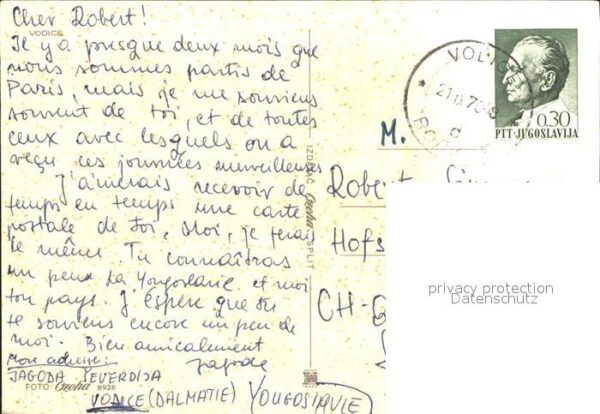 Cher Robert!
VODICE
Il y a presque deux mois que
nous sommes partis de
Paris, mais je me souviens
souvent de toi, et de toutes
ceux avec lesquels on a
reçu les journées merveilleuses
J'aimerais recevoir de
temps en temps une carte
postale de toi, Moi, je ferais
le même. Tu connaîtras
un peux la Yougoslavie et moi
ton pays. J'éspère que tu
te souviens encore un peu de
moi. Bien amicalement
Jagoda
Mon adresse:
JAGODA ŠEVERDIJA
FOTO Ozeha 8926
VODICE (DALMATIE) YOUGOSLAVIE
IZDAVAČ Ozeha SPLIT
VODICE
0.30
PTT-JUGOSLAVIJA
M.
Robert
Hofs
CH-
privacy protection
Datenschutz